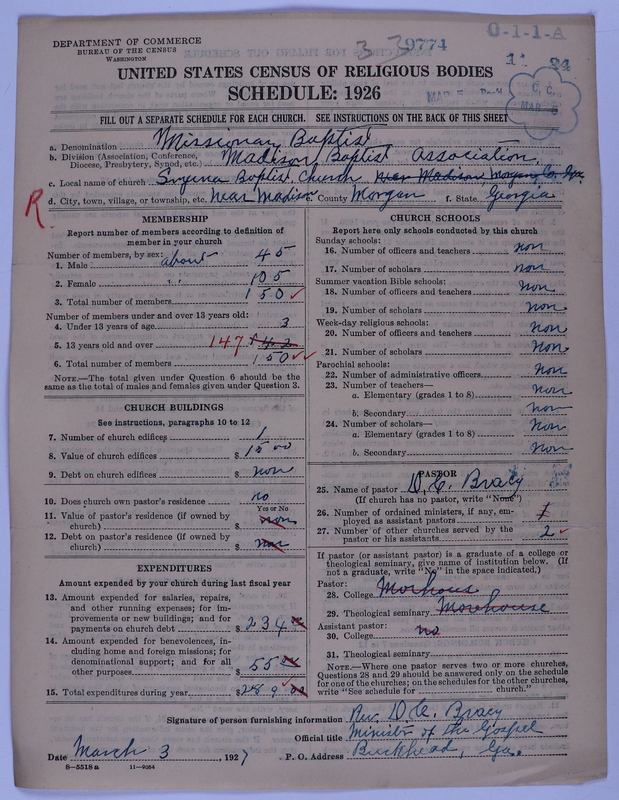 DEPARTMENT OF COMMERCE
BUREAU OF THE CENSUS
WASHINGTON
3 39774
0-1-1-A
UNITED STATES CENSUS OF RELIGIOUS BODIES
SCHEDULE: 1926
MAR 5
C. C.
MAR
FILL OUT A SEPARATE SCHEDULE FOR EACH CHURCH. SEE INSTRUCTIONS ON THE BACK OF THIS SHEET
a. Denomination Missionary Baptist
b. Division (Association, Conference, Diocese, Presbytery, Synod, etc.) Madison Baptist Association,
c. Local name of church Smyrna Baptist Church near Madison, Morgan, Co. Ga.
R
d. City, town, village, or township, etc. Near Madison. County Morgan f. State Georgia
MEMBERSHIP
Report number of members according to definition of
member in your church
Number of members, by sex:
1. Male about 45
2. Female " " 105
3. Total number of members 150
Number of members under and over 13 years old:
4. Under 13 years of age 3
5. 13 years old and over 147
6. Total number of members 150
NOTE.—The total given under Question 6 should be the
same as the total of males and females given under Question 3.
CHURCH BUILDINGS
See instructions, paragraphs 10 to 12
7. Number of church edifices 1
8. Value of church edifices $ 1500
9. Debt on church edifices $ non
10. Does church own pastor's residence no
Yes or No
11. Value of pastor's residence (if owned by
church) $ non
12. Debt on pastor's residence (if owned by
church) $ non
EXPENDITURES
Amount expended by your church during last fiscal year
13. Amount expended for salaries, repairs,
and other running expenses; for im-
provements or new buildings; and for
payments on church debt $ 234 00
14. Amount expended for benevolences, in-
cluding home and foreign missions; for
denominational support; and for all
other purposes $ 55 00
15. Total expenditures during year $ 289 00
CHURCH SCHOOLS
Report here only schools conducted by this church
Sunday schools:
16. Number of officers and teachers non
17. Number of scholars non
Summer vacation Bible schools:
18. Number of officers and teachers non
19. Number of scholars non
Week-day religious schools:
20. Number of officers and teachers non
21. Number of scholars non
Parochial schools:
22. Number of administrative officers non
23. Number of teachers—
a. Elementary (grades 1 to 8) non
b. Secondary non
24. Number of scholars—
a. Elementary (grades 1 to 8) non
b. Secondary non
PASTOR
25. Name of pastor D. C. Bracy
(If church has no pastor, write "None")
26. Number of ordained ministers, if any, em-
ployed as assistant pastors 1
27. Number of other churches served by the
pastor or his assistants 2
If pastor (or assistant pastor) is a graduate of a college or
theological seminary, give name of institution below. (If
not a graduate, write "No" in the space indicated.)
Pastor:
28. College Morhous
29. Theological seminary Morehouse
Assistant pastor:
30. College no
31. Theological seminary
NOTE.—Where one pastor serves two or more churches,
Questions 28 and 29 should be answered only on the schedule
for one of the churches; on the schedules for the other churches,
write "See schedule for church."
Signature of person furnishing information Rev. D. C. Bracy
Official title Minister of the Gospel
Date March 3, 1927 P. O. Address Buckhead, Ga.
8-5518 a 11-9084